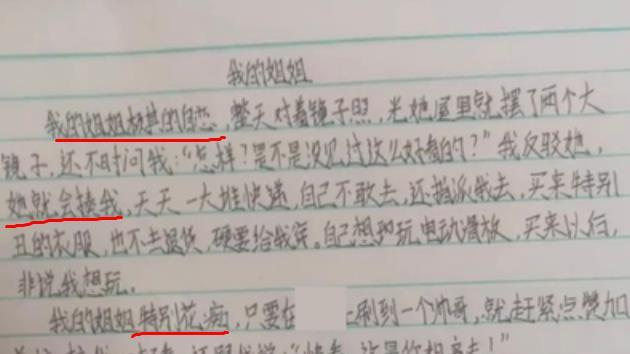 我的姐姐
我的姐姐极其的自恋，整天对着镜子照，光她屋里就摆了两个大
镜子，还不时问我：“怎样？是不是没见过这么好看的？”我反驳她，
她就会揍我，天天一大堆快递，自己不敢去，还指派我去，买来特别
丑的衣服，也不去退货，硬要给我穿。自己想玩电动滑板，买来以后，
非说我想玩。
我的姐姐特别花痴，只要在上刷到一个帅哥，就赶紧点赞加